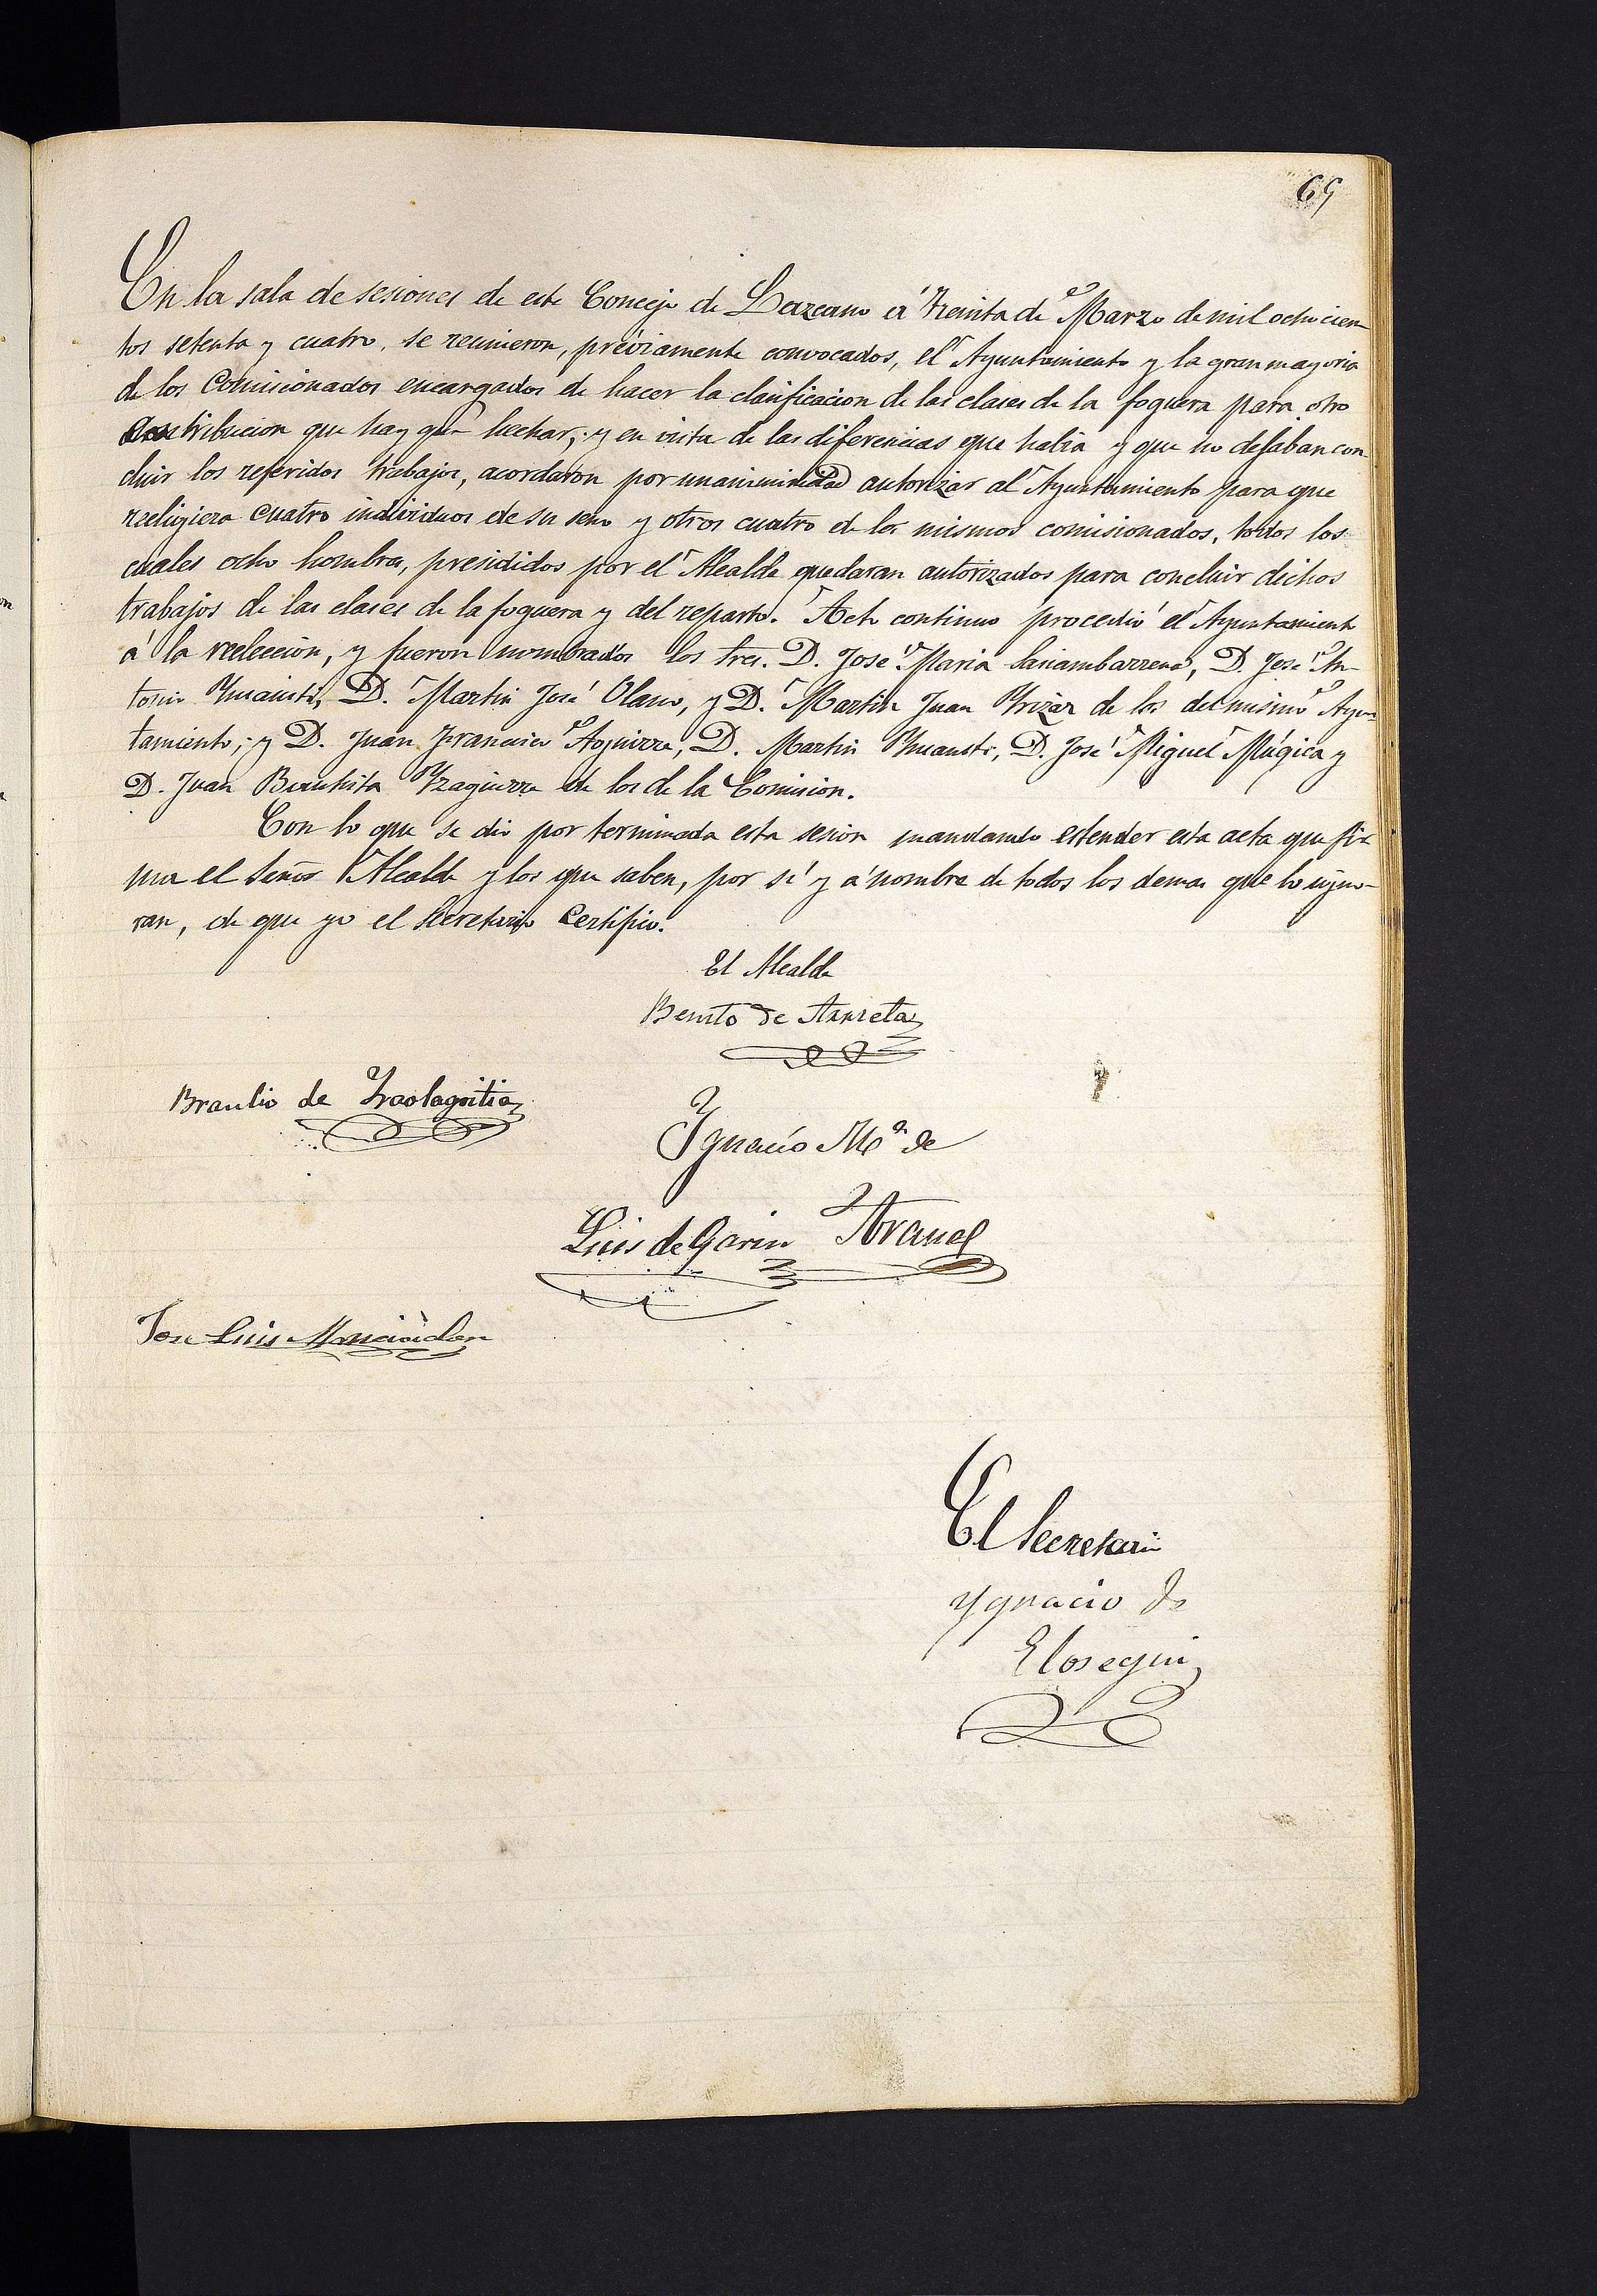 69
En la sala de sesiones de este Concejo de Lazcano á treinta de Marzo de mil ochocien
tos setenta y cuatro, se reunieron, préviamente convocados, el Ayuntamiento y la gran mayoria
de los Comisionados encargados de hacer la clasificacion de las clases de la foguera para otro
distribucion que hay que hechar; y en vista de las diferencias que habia y que no dejaban con
cluir los referidos trabajos, acordaron por unanimidad autorizar al Ayuntamiento para que
reeligiera cuatro individuos de su seno y otros cuatro de los mismos comisionados, todos los
cuales ocho hombres, presididos por el Alcalde quedaran autorizados para concluir dichos
trabajos de las clases de la foguera y del reparto. Acto continuo procedió el Ayuntamiento
á la reeleccion, y fueron nombrados los tres. D. José Maria Sasiambarrena, D. José An-
tonio Ymausti, D. Martin José Olano, y D. Martin Juan Yrizar de los del mismo Ayun
tamiento; y D. Juan Francisco Aguirre, D. Martin Ymausti, D. José Miguel Múgica y
D. Juan Bautista Yzaguirre de los de la Comision.
Con lo que se dió por terminada esta sesion mandando estender esta acta que fir
ma el Señor Alcalde y los que saben, por si y á nombre de todos los demas que lo igno-
ran, de que yo el Secretario Certifico.
El Alcalde
Benito de Arrieta
Braulio de Yraolagoitia
Ygnacio Mª de
Luis de Garin Arana
José Luis
El Secretario
Ygnacio de
Elosegui